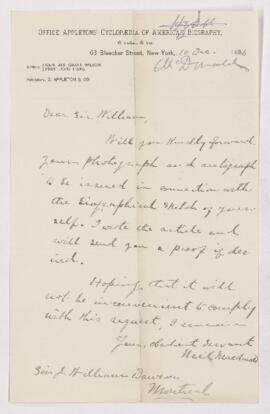 OFFICE APPLETONS' CYCLOPÆDIA OF AMERICAN BIOGRAPHY,
63 Bleecker Street, New York, 10 Dec. 1886
McDonald
Publishers, D. APPLETON & CO.
Dear Sir William,
Will you kindly forward
your photograph and autograph
to be issued in connection with
the biographical sketch of your-
self. I wrote the article and
will send you a proof if des-
ired.
Hoping that it will
not be inconvenient to comply
with this request, I remain
Your obedient servant
Neil Macdonald
Sir J. William Dawson
Montreal